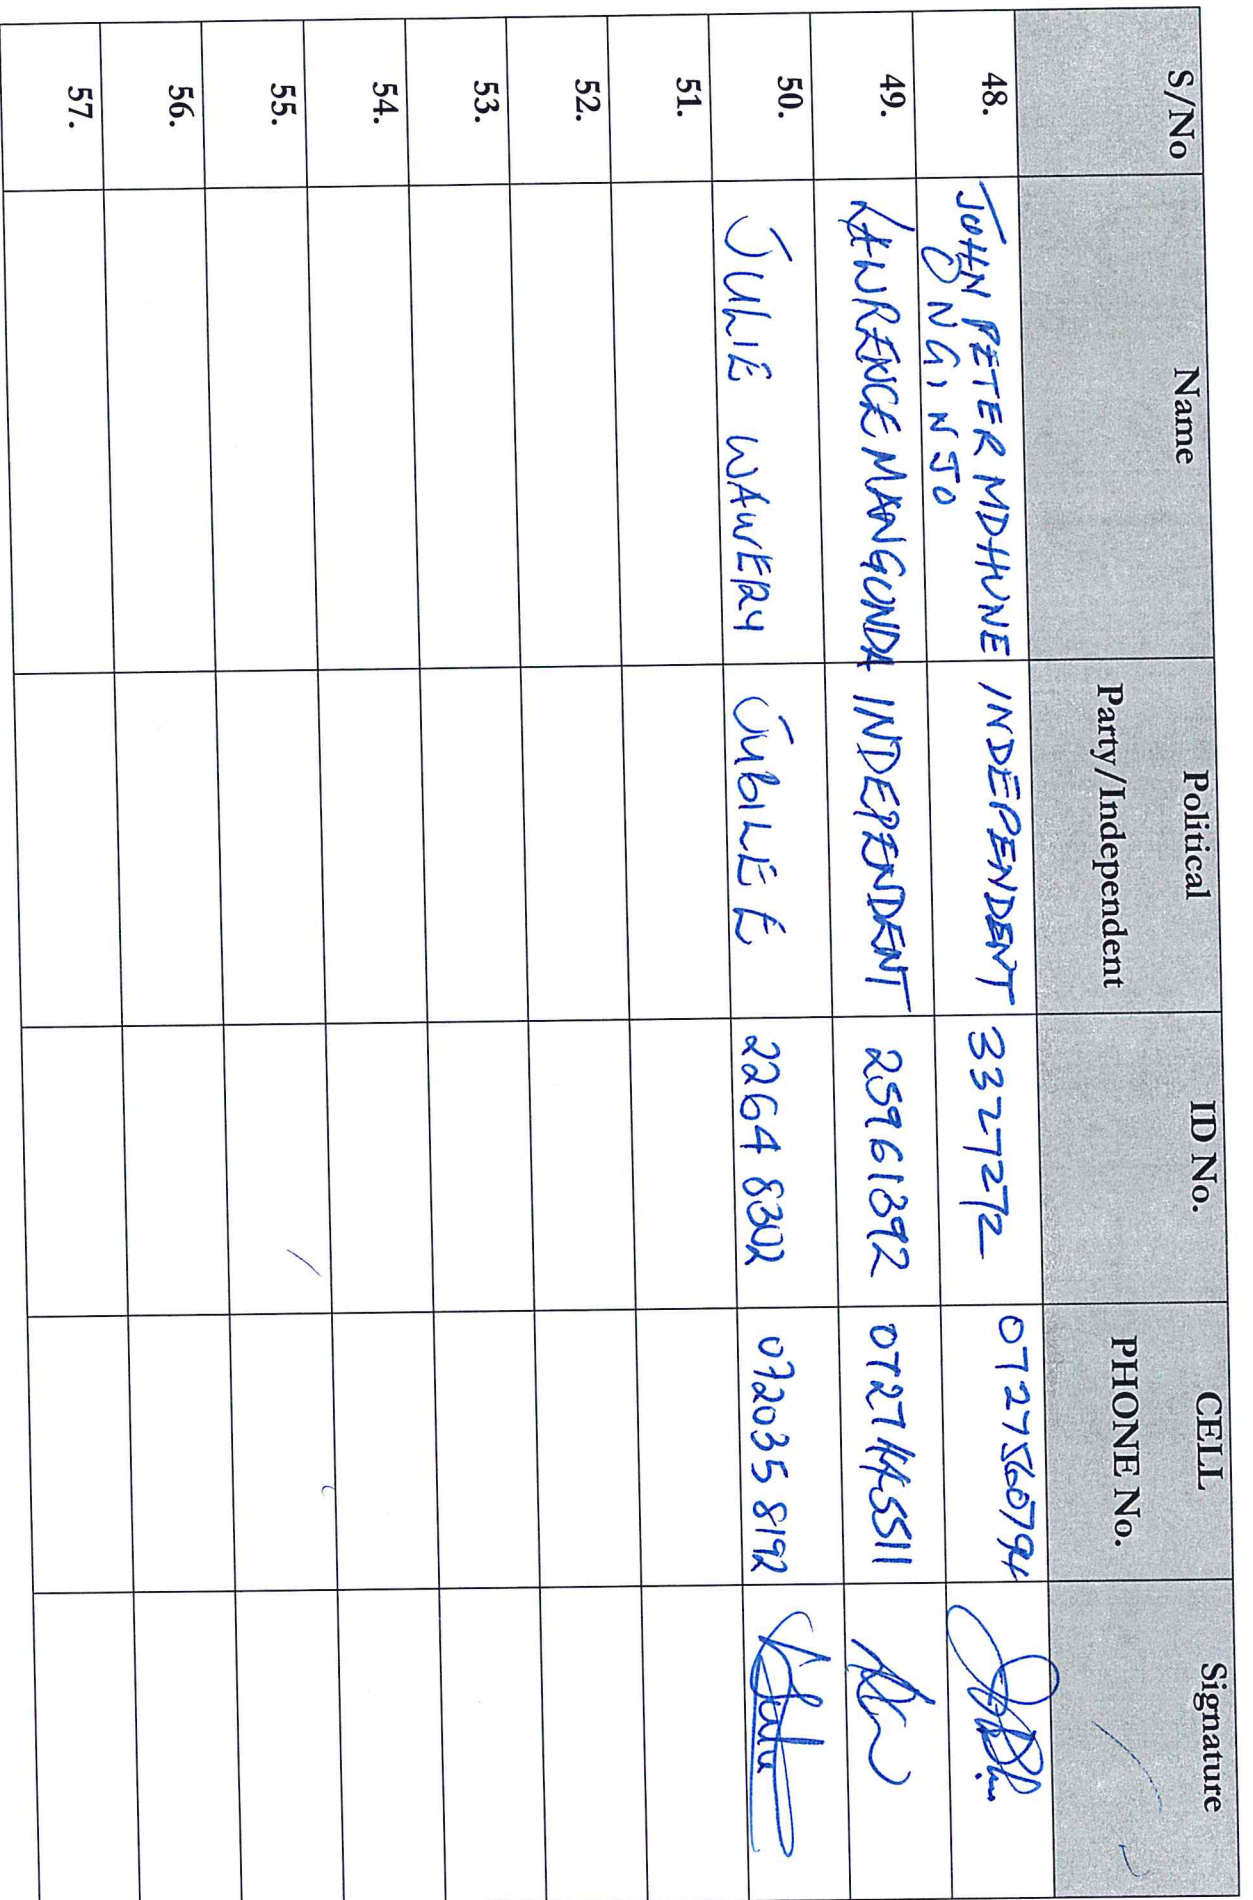 S/No Name Political Party/Independent ID No. CELL PHONE No. Signature
48. JOHN PETER MDHUNE NGINJO INDEPENDENT 3327272 0727560794
49. LAWRENCE MANGUNDA INDEPENDENT 25961392 0727445511
50. JULIE WAWERY JUBILEE 2264 8302 072035 8192
51.
52.
53.
54.
55.
56.
57.